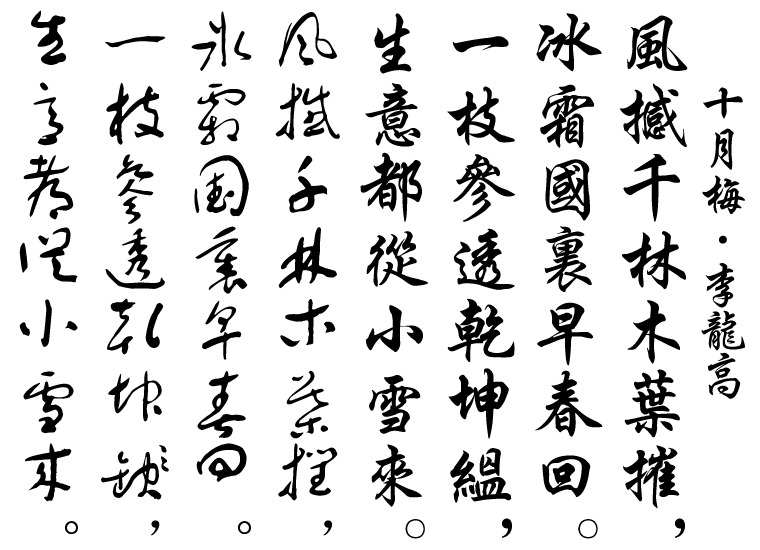 十月梅·李龍高
風撼千林木葉摧，
冰霜國裏早春回。
一枝參透乾坤縕，
生意都從小雪來。
風撼千林木葉摧，
冰霜國裏早春回。
一枝參透乾坤，
生意都從小雪來。